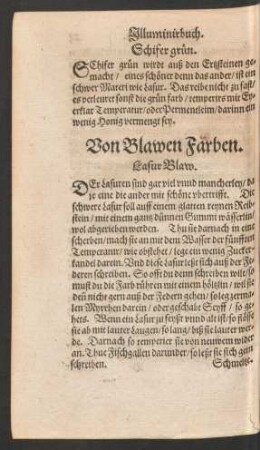 Illuminirbuch.
Schifer grün.
SChifer grün wirdt auß den Ertzsteinen ge-
macht / eines schöner denn das ander / ist ein
schwer Materi wie Lasur. Das reibe nicht zu fast /
es verleuret sonst die grün farb / temperirs mit Ey-
erklar Temperatur / oder Permenfeim / darinn ein
wenig Honig vermengt sey.
Von Blawen Farben.
Lasur Blaw.
DEr Lasuren sind gar viel unnd mancherley / da
je eine die ander mit schöne ubertrifft. Die
schwere Lasur soll auff einem glatten reynen Reib-
stein / mit einem gantz dünnen Gummi wässerlin /
wol abgerieben werden. Thu sie darnach in eine
scherben / mach sie an mit dem Wasser der fünfften
Temperatur / wie obstehet / lege ein wenig Zucker-
kandel darin. Und diese Lasur leßt sich auß der Fe-
deren schreiben. So offt du denn schreiben wilt / so
mustu die Farb rühren mit einem höltzlin / wil sie
deñ nicht gern auß der Federn gehen / so leg zermal-
len Myrrhen darein / oder geschabt Seyff / so ge-
hets. Wenn ein Lasur zu feyßt unnd alt ist / so stosse
sie ab mit lauter Laugen / so lang / biß sie lauter wer-
de. Darnach so temperier sie von neuwem wider
an. Thue Fischgallen darunder / so leßt sie sich gern
schreiben.
Schmeltz-